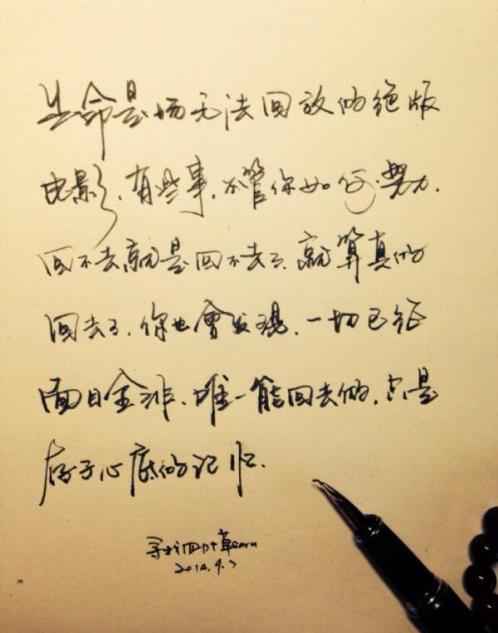 生命是场无法回放的绝版
电影,有些事,不管你如何努力,
回不去就是回不去了,就算真的
回去了,你也會发现,一切已经
面目全非,唯一能回去的,只是
存于心底的记忆.
2014.9.7